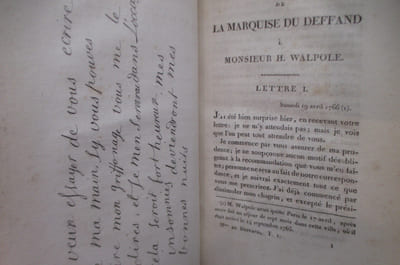 veux essayer de vous ecrire
ma main, Sy vous pouves
mon griffonage vous me le
dires, et je men
cela seroit fort heureux. mes
insomnies deviendroit mes
bonnes nuits
DE
LA MARQUISE DU DEFFAND
À
MONSIEUR H. WALPOLE.
LETTRE I.
Samedi 19 avril 1766 (1).
J'ai été bien surprise hier, en recevant votre
lettre: je ne m'y attendais pas; mais je vois
que l'on peut tout attendre de vous.
Je commence par vous assurer de ma pru-
dence; je ne soupçonne aucun motif désobli-
geant à la recommandation que vous m'en fai-
tes; personne ne sera au fait de notre correspon-
dance, et je suivrai exactement tout ce que
vous me prescrirez. J'ai déjà commencé par
dissimuler mon chagrin, et excepté le prési-
(1) M. Walpole avait quitté Paris le 17 avril, après
avoir fait un séjour de sept mois dans cette ville, où il
était arrivé le 13 septembre 1765.
Mme du Deffand, T. I.
1